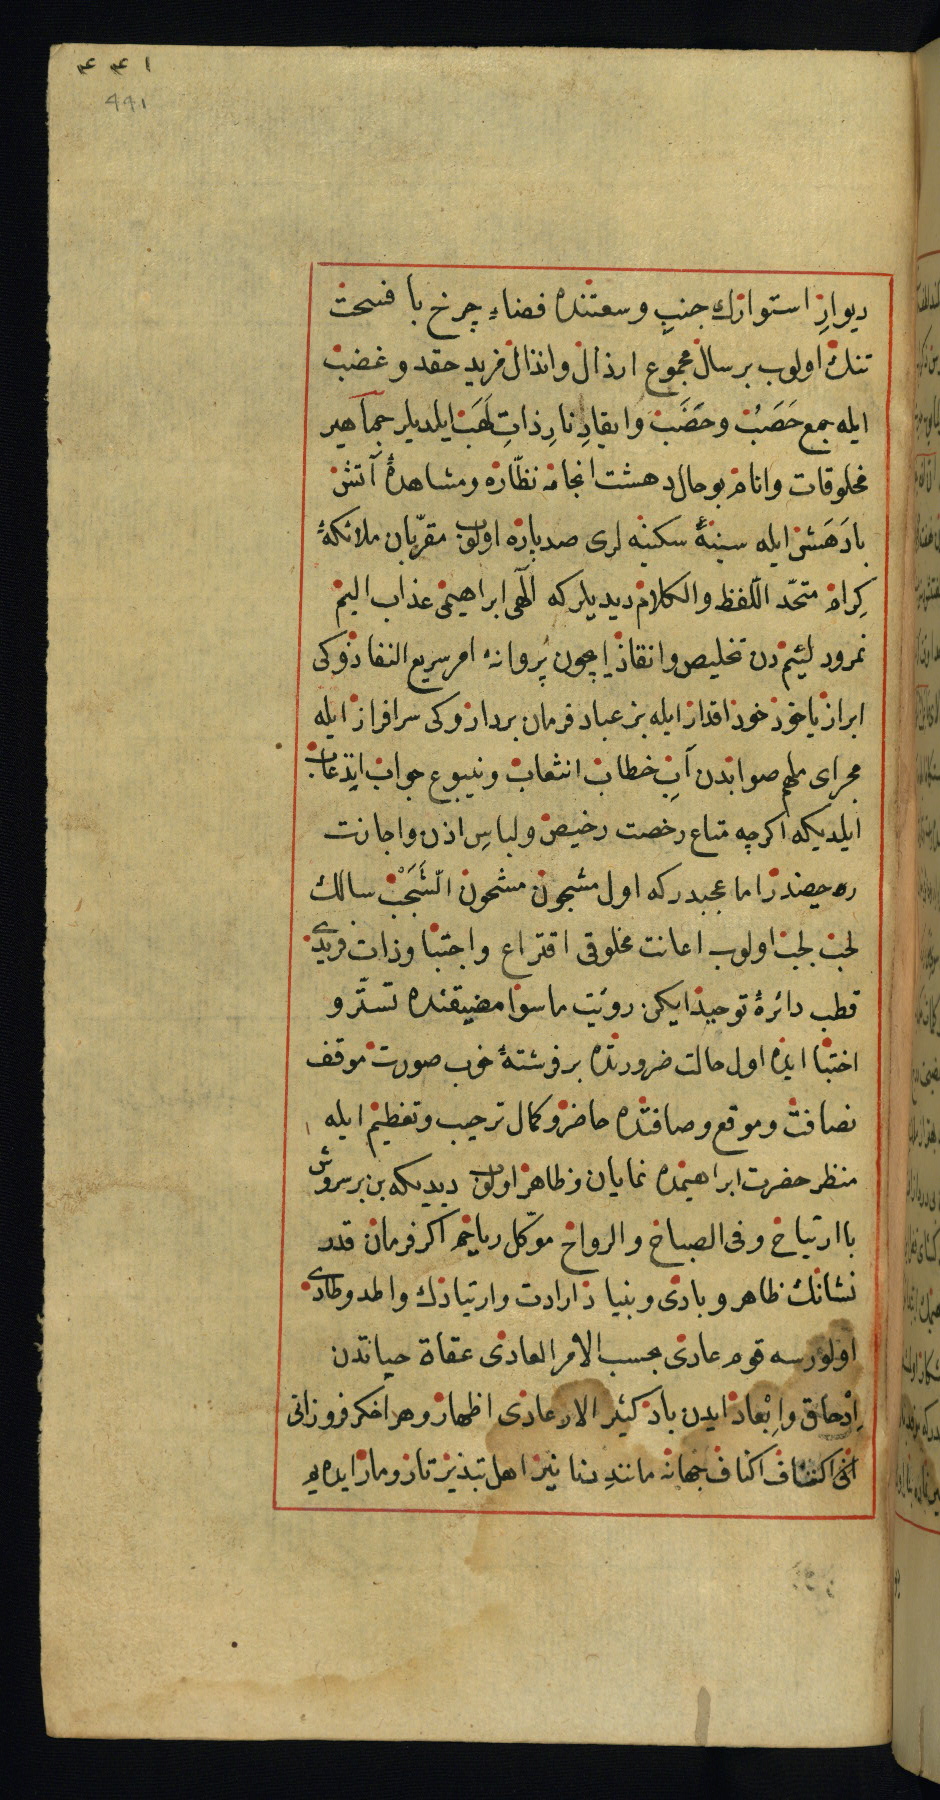 ٤٤١
441
ديوارِ استوارك جنبِ وسعتنده فضاءِ چرخ با فسحت
تنك اولوب برسال مجموع ارذال وانذال مزيد حقد وغضب
ايله جمع حَصَبُ وحَضَب وايقادِ نارِ ذاتِ لَهَب ايلديلر جماهير
مخلوقات وانام بوحال دهشت انجامه نظّاره ومشاهدۀ آتش
بادَهَشى ايله سينۀ سكينه لرى صدپاره اولوب مقرّبان ملائكۀ
كِرام متحّد اللّفظ والكلام ديديلركه الٓهى ابراهيمى عذاب اليم
نمرود لئيم دن تخليص وانقاذ ايچون پروانۀ امر سريع النفاذوكى
ابراز ياخود خود اقدار ايله بز عباد فرمان بردازوكى سرافراز ايله
مجراى ملهم صوابدن آبِ خطاب انثعاب وينبوع جواب ايذعاب
ايلديكه اكرچه متاع رخصت رخيص ولباسِ اذن واجازت
رەحيصدر اما عجبدركه اول مشجون مشحون الشَّجَن سالك
لجب لجب اولوب اعانت مخلوقى اقتراع واجتبا وذات فريدى
قطب دائرۀ توحيد ايكن روئت ماسوا مضيقنده تستّر و
اختبا ايده اول حالت ضرورتده برفرشتۀ خوب صورت موقف
نصافت وموقع وصافتده حاضر وكمال ترحيب وتعظيم ايله
منظر حضرت ابراهيمده نمايان وظاهر اولوب ديديكه بن برسروش
باارتياح وفى الصباح والرواح موكّل رياحم اكر فرمان قدر
نشانك ظاهر وبادى وبنياد ارادت وارتيادك واطد وطادى
اولورسه قوم عادى بحسب الامر العادى عقاة حياتدن
اِزحاق واِبْعاد ايدن باد كثير الارعادى اظهار وهر اخكر فروزانى
اكناف جهانه مانندِ دنانير اهل تبذير تار ومار ايده يم